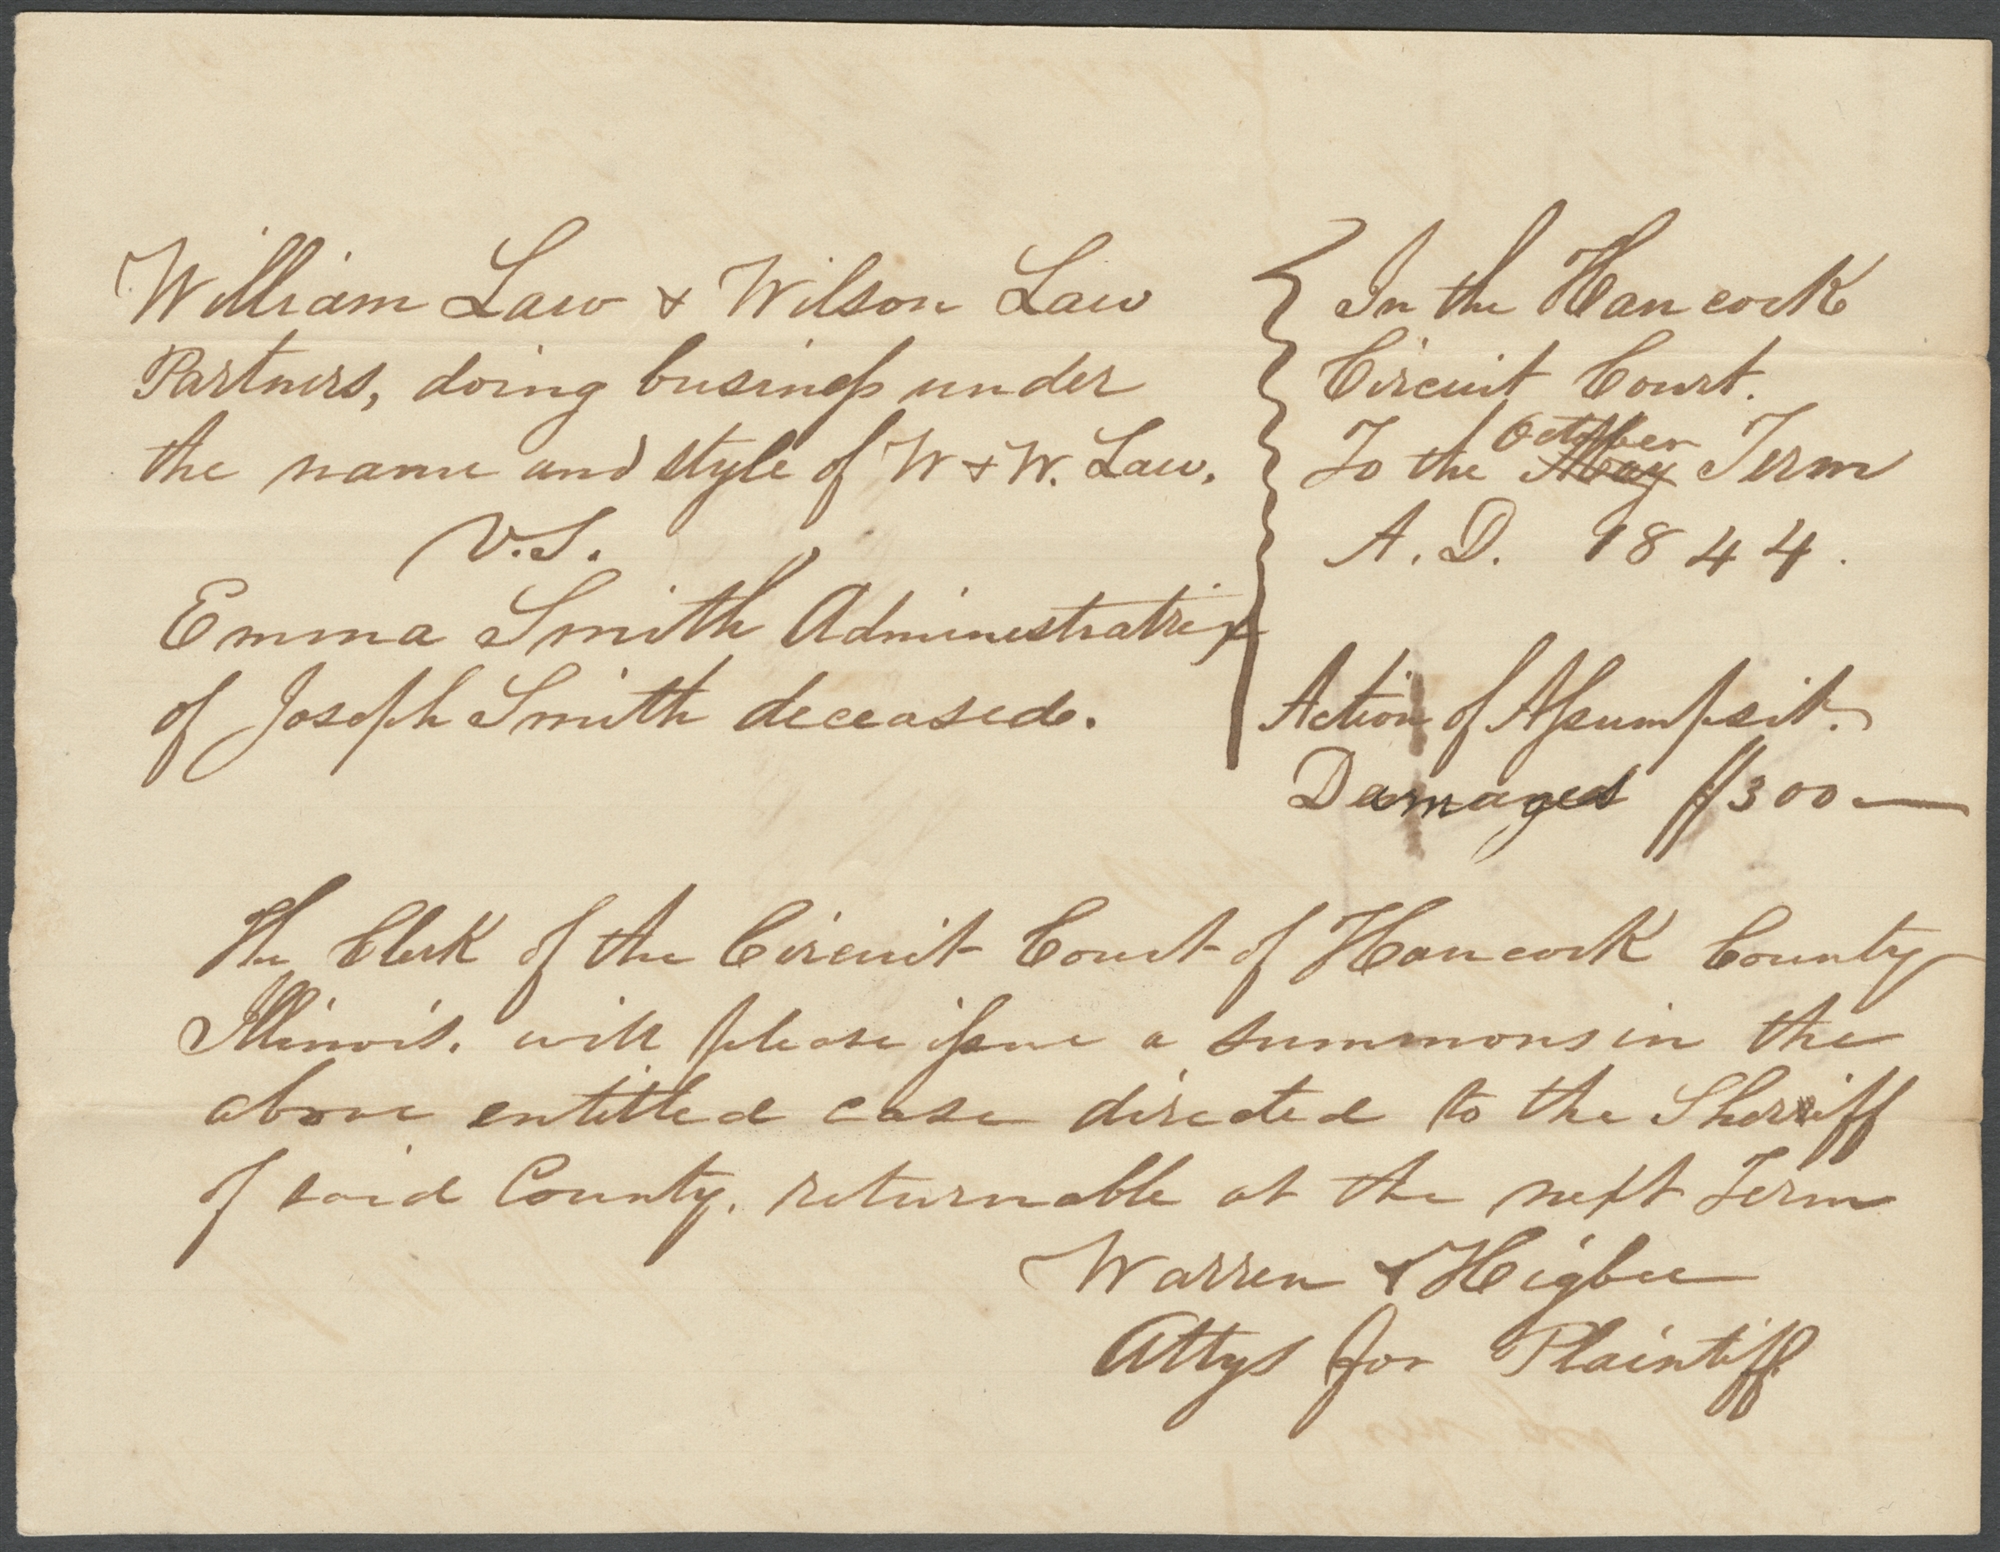 William Law & Wilson Law
Partners, doing business under
the name and style of W & W. Law.
V.S.
Emma Smith Administratrix
of Joseph Smith deceased.
In the Hancock
Circuit Court.
To the May October Term
A.D. 1844.
Action of Assumpsit.
Damages $300—
The Clerk of the Circuit Court of Hancock County
Illinois. will please issue a summons in the
above entitled case directed to the Sheriff
of said County, returnable at the next Term
Warren & Higbee
Attys for Plaintiff